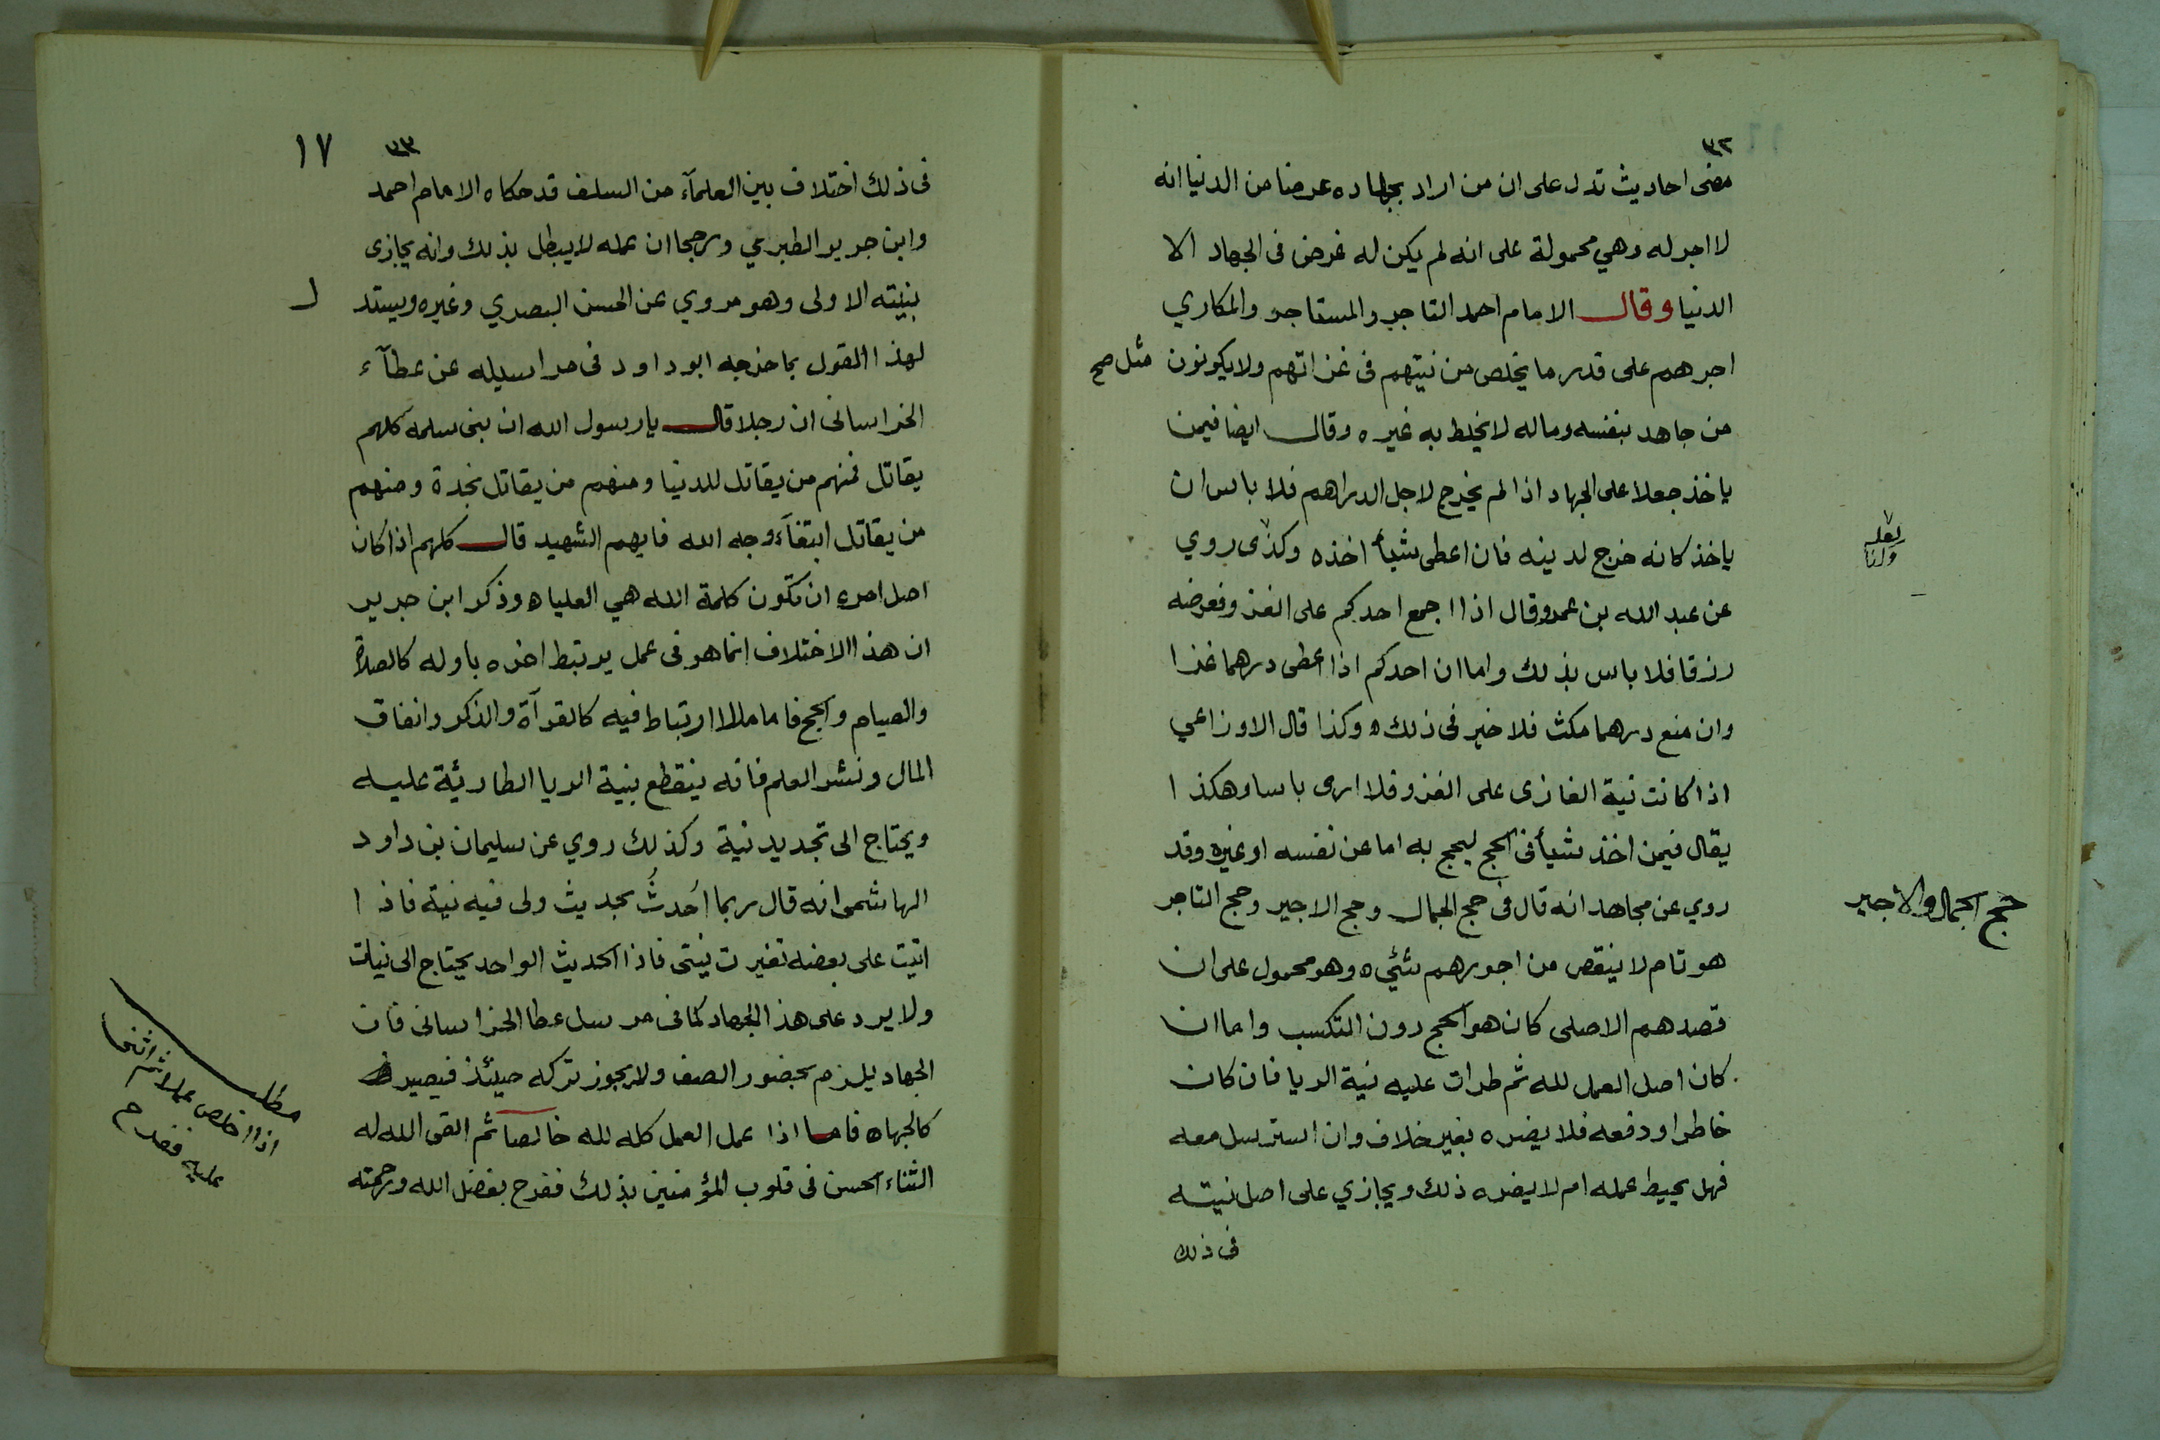 ٣٢
مضى احاديث تدل على ان من اراد بجهاده عرضا من الدنيا انه
لا اجر له وهي محمولة على انه لم يكن له غرض فى الجهاد الا
الدنيا وقال الامام احمد التاجر والمستاجر والمكاري
اجرهم على قدر ما يخلص من نيتهم فى غزاتهم ولا يكونون مثل صح
من جاهد بنفسه وماله لا يخلط به غيره وقال ايضا فيمن
ياخذ جعلا على الجهاد اذا لم يخرج لاجل الدراهم فلا باس ان
ياخذ كانه خرج لدينه فان اعطى شيأ اخذه وكذى روي
عن عبد الله بن عمرو قال اذا اجمع احدكم على الغزو فعوضه
رزقا فلا باس بذلك واما ان احدكم اذا اعطى درهما غزا
وان منع درهما مكث فلا خير فى ذلك ه وكذا قال الاوزاعي
اذا كانت نية الغازى على الغزو فلا ارى باسا وهكذا
يقال فيمن اخذ شيأ فى الحج ليحج به اما عن نفسه او غيره وقد
روي عن مجاهد انه قال فى حج الجمال وحج الاجير وحج التاجر
حج الجمال والاجير
هو تام لا ينقص من اجورهم شئي ه وهو محمول على ان
قصدهم الاصلى كان هو الحج دون التكسب واما ان
كان اصل العمل لله ثم طرات عليه نية الريا فان كان
خاطرا ودفعه فلا يضره بغير خلاف وان استرسل معه
فهل يحيط عمله ام لا يضره ذلك ويجازي على اصل نيته
فى ذلك
٣٣
١٧
فى ذلك اختلاف بين العلمآء من السلف قد حكاه الامام احمد
وابن جرير الطبري ورجحا ان عمله لا يبطل بذلك وانه يجازى
بنيته الاولى وهو مروي عن الحسن البصري وغيره ويستد ل
لهذا القول بما خرجه ابو داود فى مراسيله عن عطآء
الخراسانى ان رجلا قال يا رسول الله ان بنى سلمه كلهم
يقاتل فمنهم من يقاتل للدنيا ومنهم من يقاتل نجدة ومنهم
من يقاتل ابتغآء وجه الله فايهم الشهيد قال كلهم اذا كان
اصل امره ان تكون كلمة الله هي العليا ه وذكر ابن جرير
ان هذا الاختلاف انما هو فى عمل يرتبط اخره باوله كالصلاة
والصيام والحج فاما ما لا ارتباط فيه كالقرآة والذكر وانفاق
المال ونشر العلم فانه ينقطع بنية الريا الطارئة عليه
ويحتاج الى تجديد نية وكذلك روي عن سليمان بن داود
الهاشمى انه قال ربما احُدثُ بحديث ولى فيه نية فاذا
اتيت على بعضه تغيرت نيتى فاذا الحديث الواحد يحتاج الى نيات
ولا يرد على هذا الجهاد كما فى مرسل عطا الخراسانى فان
الجهاد يلزم بحضور الصف ولا يجوز تركه حينئذ فيصير
كالجهاه فاما اذا عمل العمل كله لله خالصا ثم القى الله له
الثناء الحسن فى قلوب المؤمنين بذلك ففرح بفضل الله ورحمته
مطلب
اذا اخلص عملا ثم اثنى
عليه ففرح